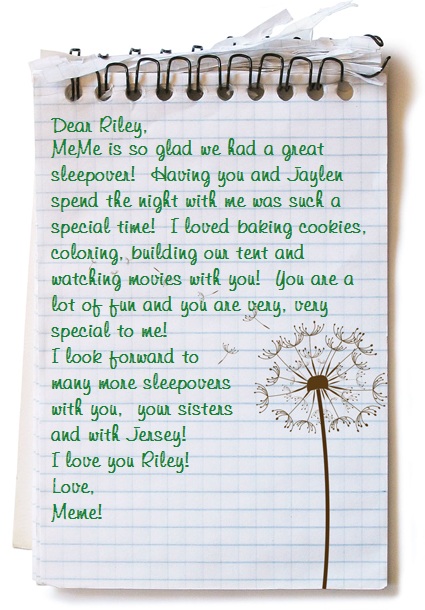 Dear Riley,
MeMe is so glad we had a great
sleepover! Having you and Jaylen
spend the night with me was such a
special time! I loved baking cookies,
coloring, building our tent and
watching movies with you! You are a
lot of fun and you are very, very
special to me!
I look forward to
many more sleepovers
with you, your sisters
and with Jersey!
I love you Riley!
Love,
Meme!